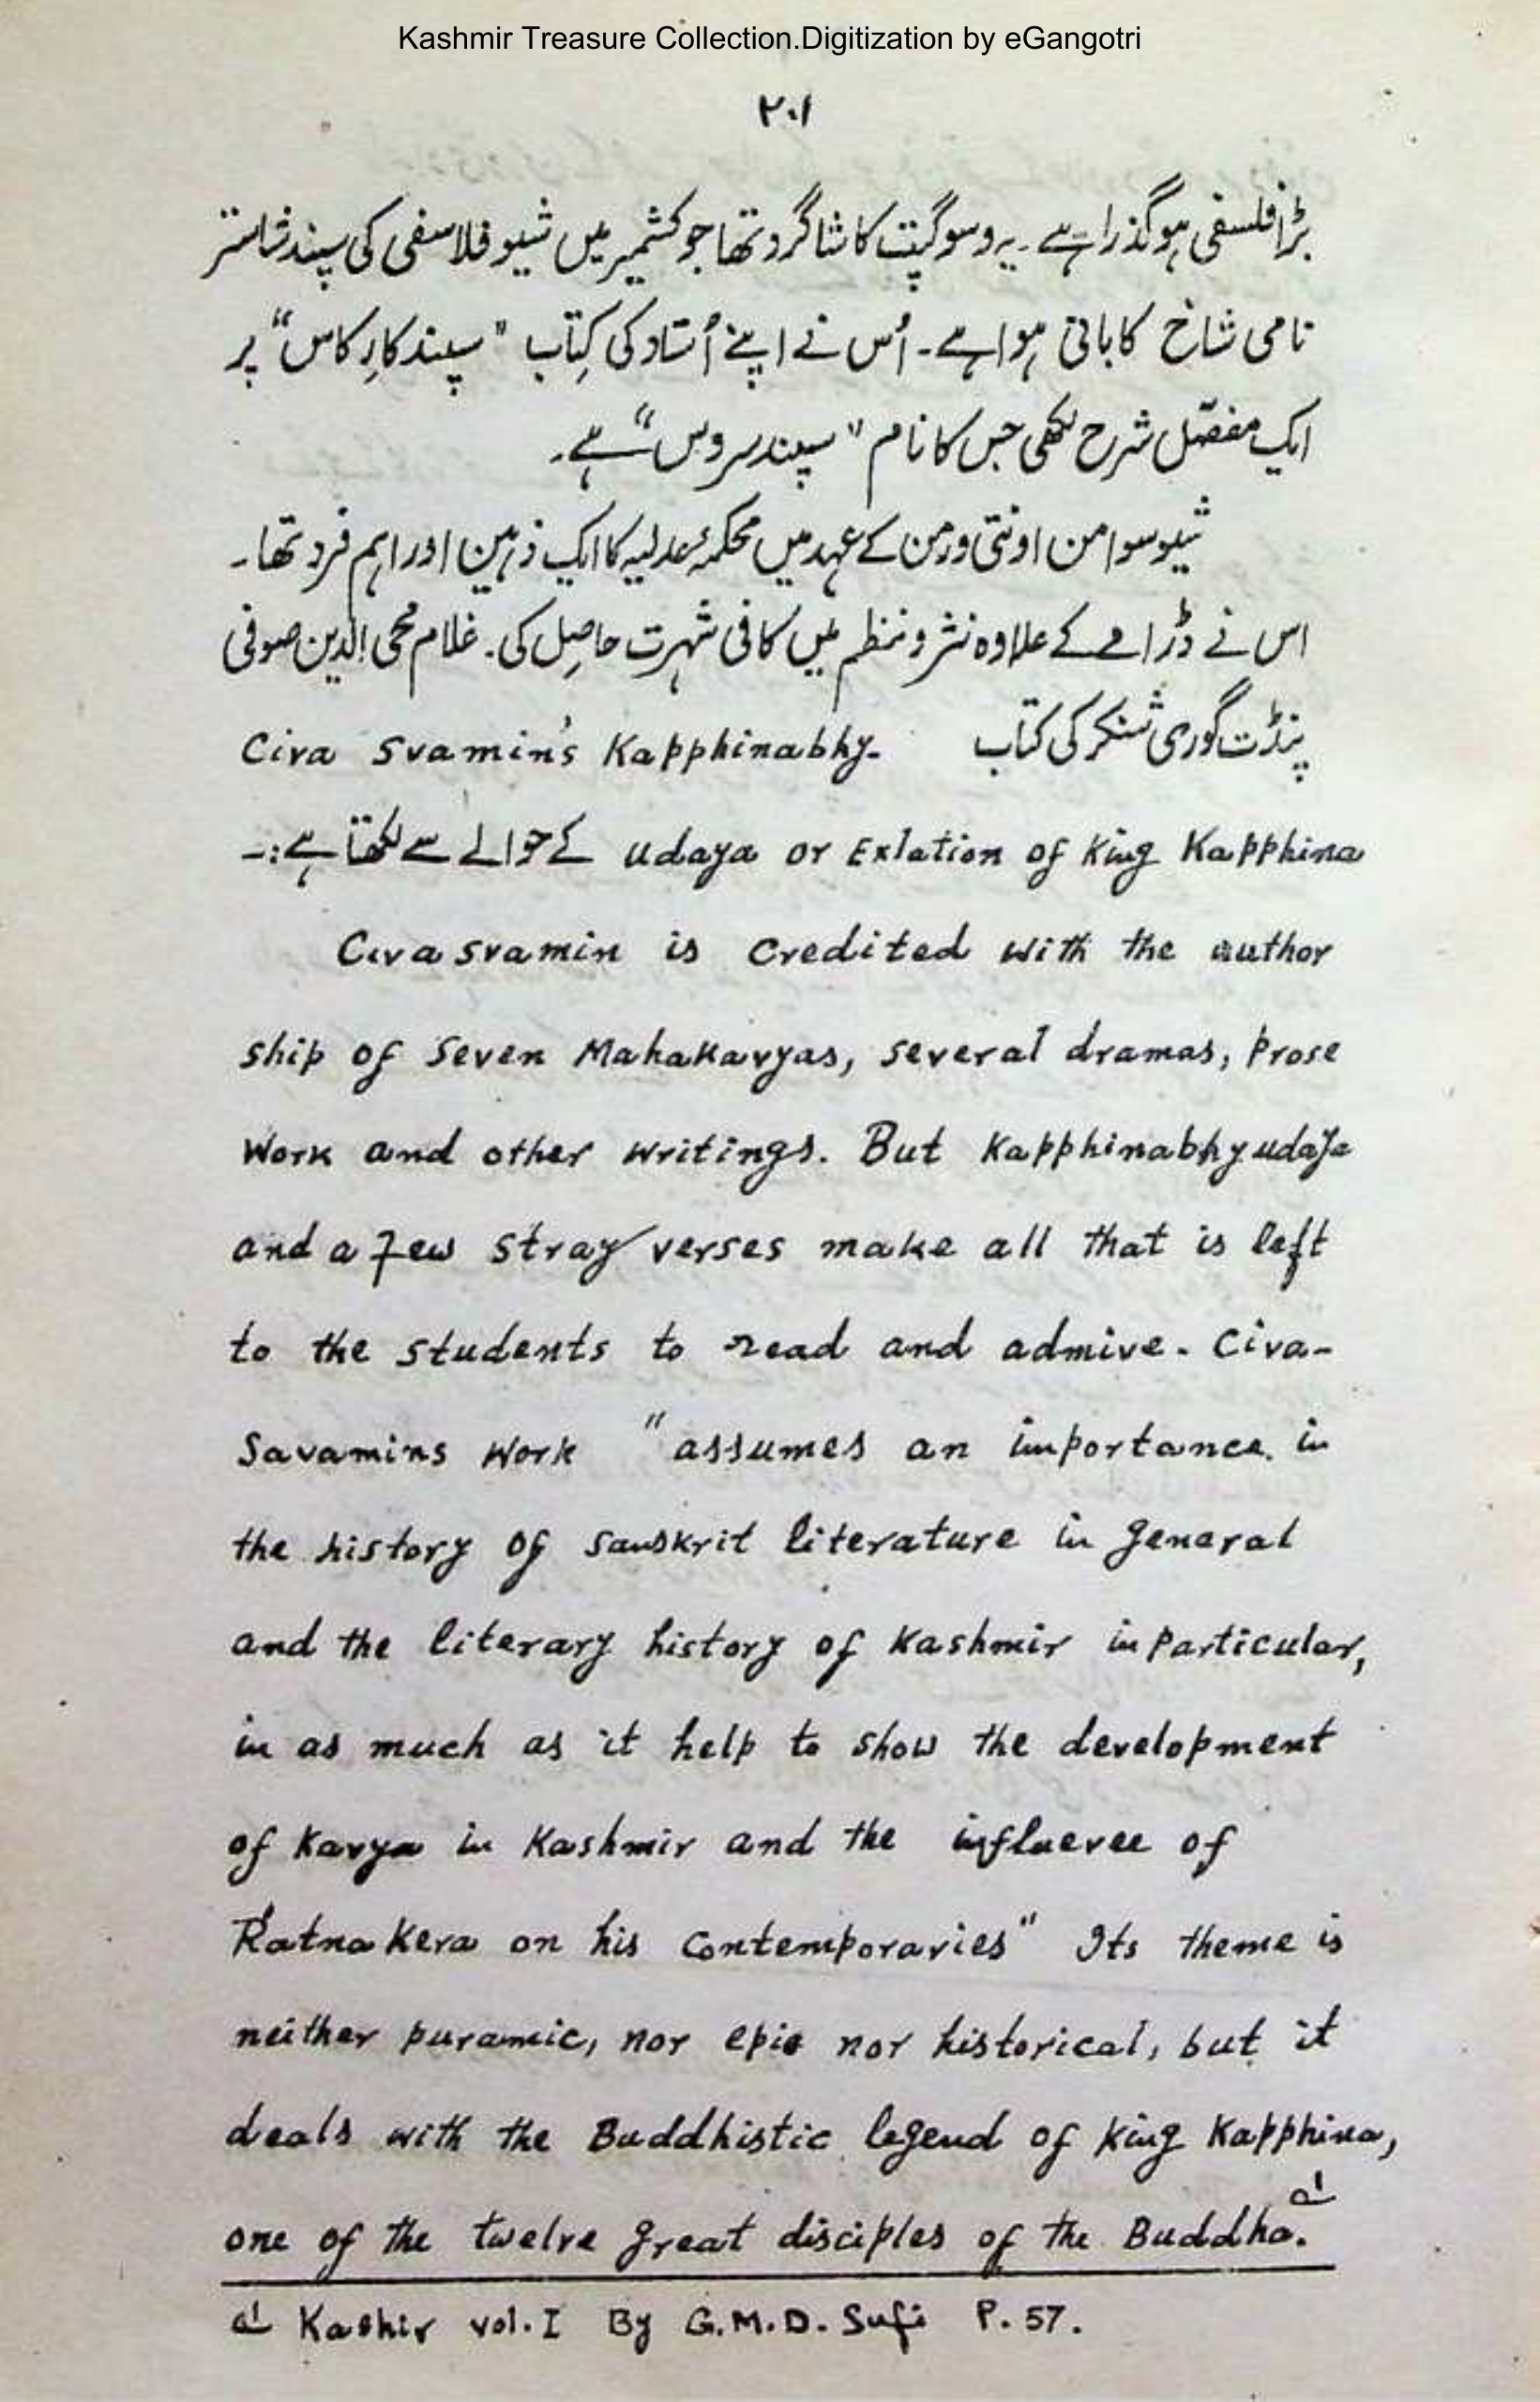 Kashmir Treasure Collection.Digitization by eGangotri
۲۰۱
بڑا فلسفی ہو گذرا ہے۔ یہ وسوگپت کا شاگرد تھا جو کشمیر میں شیو فلاسفی کی سپند شاستر
نامی شاخ کا بانی ہوا ہے۔ اُس نے اپنے اُستاد کی کِتاب "سپند کارِکاس" پر
ایک مفصّل شرح لکھی جس کا نام "سپند سروس" ہے۔
شیو سوامن اونتی ورمن کے عہد میں محکمۂ عدلیہ کا ایک ذہین اور اہم فرد تھا۔
اس نے ڈرامے کے علاوہ نثر و نظم میں کافی شہرت حاصِل کی۔ غلام محی الدین صوفی
پنڈت گوری شنکر کی کتاب Civa Svamin's Kapphinabhy-
udaya or Exlation of King Kapphina کے حوالے سے لکھتا ہے:۔
Civa svamin is credited with the author
ship of Seven Mahakavyas, several dramas, prose
work and other writings. But Kapphinabhyudaya
and a few stray verses make all that is left
to the students to read and admive. Civa-
Savamins work "assumes an importance in
the history of Sanskrit literature in general
and the literary history of Kashmir in particular,
in as much as it help to show the development
of Kavya in Kashmir and the influevee of
Ratna Kera on his contemporaries" Its theme is
neither puramic, nor epic nor historical, but it
deals with the Buddhistic legend of King Kapphina,
one of the twelve great disciples of the Buddha. ؎۱
؎۱ Kashir vol. I By G.M.D. Sufi P. 57.